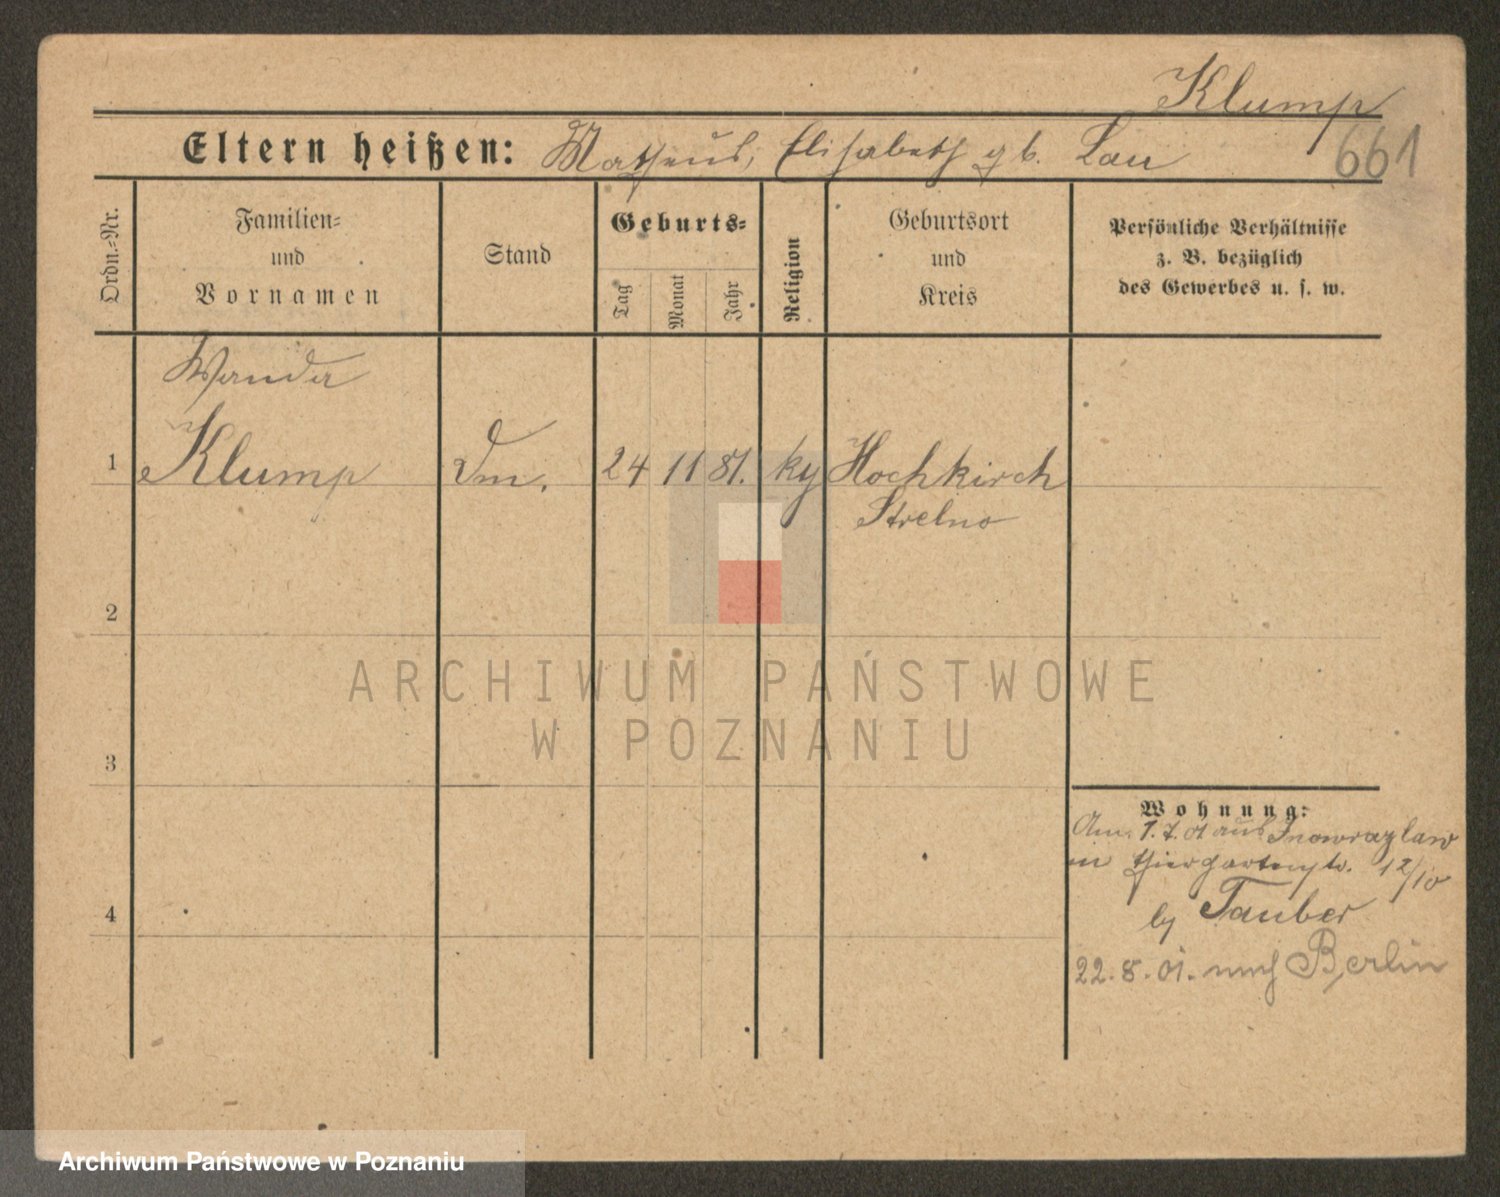 Klump
661
Eltern heißen: Matheus, Elisabeth gb. Lau
Ordn.-Nr.
Familien-
und
Vornamen
Stand
Geburts-
Tag
Monat
Jahr
Religion
Geburtsort
und
Kreis
Persönliche Verhältnisse
z. B. bezüglich
des Gewerbes u. s. w.
Wanda
1 Klump Dm. 24 11 81. kg Hochkirch
Strelno
2
3
4
Wohnung:
Am 1.7.01 aus Inowrazlaw
in Thiergartenstr. 12/10
by Tauber
22.8.01. nach Berlin
ARCHIWUM PAŃSTWOWE
W POZNANIU
Archiwum Państwowe w Poznaniu